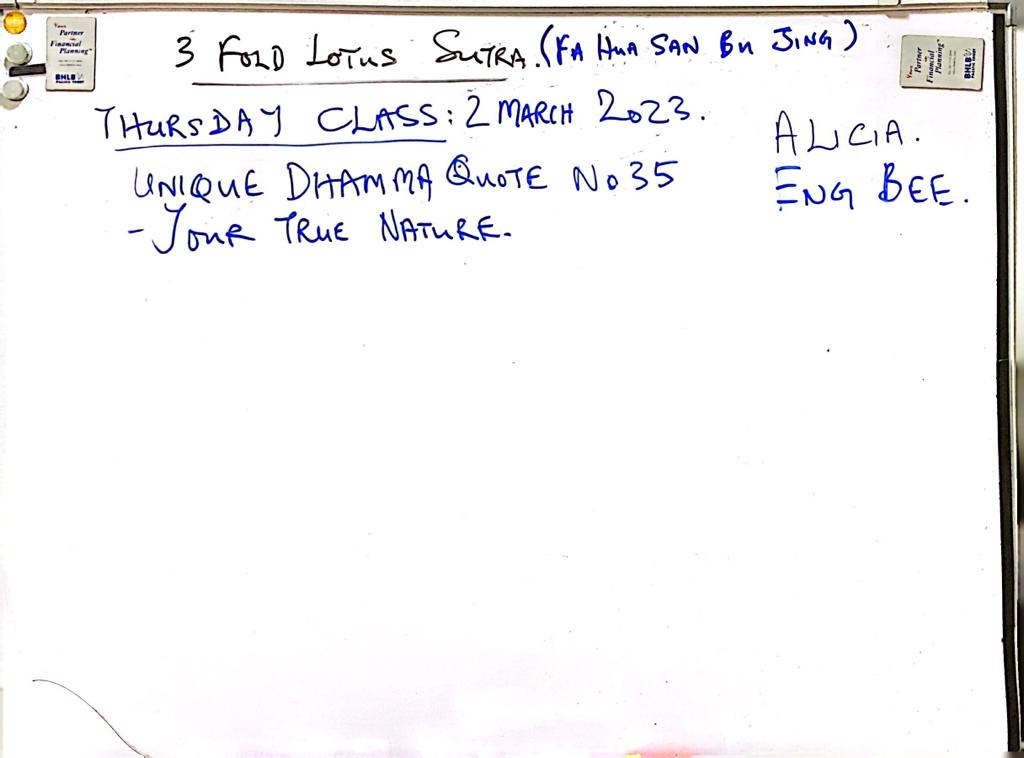 3 FOLD LOTUS SUTRA. (FA HUA SAN BU JING)
THURSDAY CLASS: 2 MARCH 2023.
UNIQUE DHAMMA QUOTE NO 35
- YOUR TRUE NATURE.
ALICIA.
ENG BEE.
Your
Partner
in
Financial
Planning
BHLB
PACIFIC TRUST
Your
Partner
in
Financial
Planning
BHLB